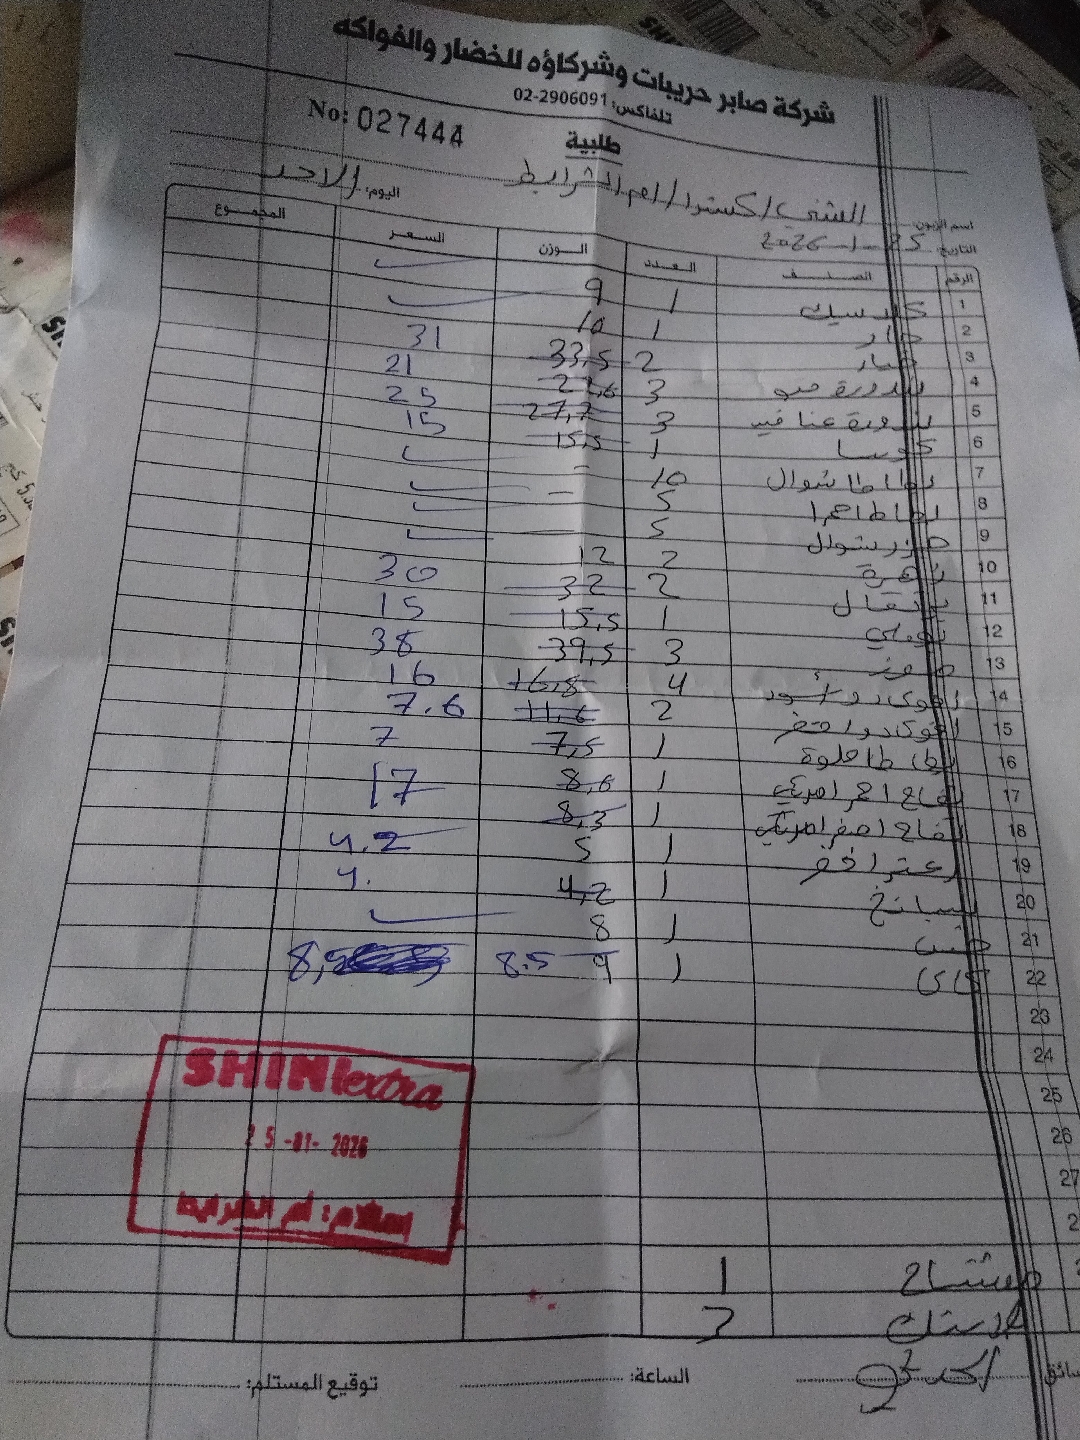 شركة صابر حريبات وشركاؤه للخضار والفواكه
تلفاكس: 02-2906091
No: 027444
طلبية
اسم الزبون: الشني اكسترا / ام الشرايط اليوم: الاحد
التاريخ: 25-1-2026
الرقم الصنف العدد الوزن السعر المجموع
1 1 9
2 1 10
3 خيار 2 33,5 31
4 بندورة 3 21
5 بندورة عناقيد 3 27,7 25
6 كوسا 1 15,5 15
7 بطاطا شوال 10 -
8 بطاطا احمر 5 -
9 جزر شوال 5
10 زهرة 2 12
11 برتقال 2 32 30
12 بوملي 1 15,5 15
13 موز 3 39,5 38
14 افوكادو اسود 4 16,8 16
15 افوكادو اخضر 2 11,6 7.6
16 بطاطا حلوة 1 7,5 7
17 تفاح احمر امريكي 1 8,6 17
18 تفاح اصفر امريكي 1 8,3
19 زعتر اخضر 1 5 4.2
20 سبانخ 1 4,2 4.
21 خس 1 8
22 كاكا 1 9 8.5 8,5
23
24
25
26
27
SHINI extra
25-01-2026
إستلام: أم الشرايط
مشتاح 1
بلاستك 3
الساعة:
توقيع المستلم: